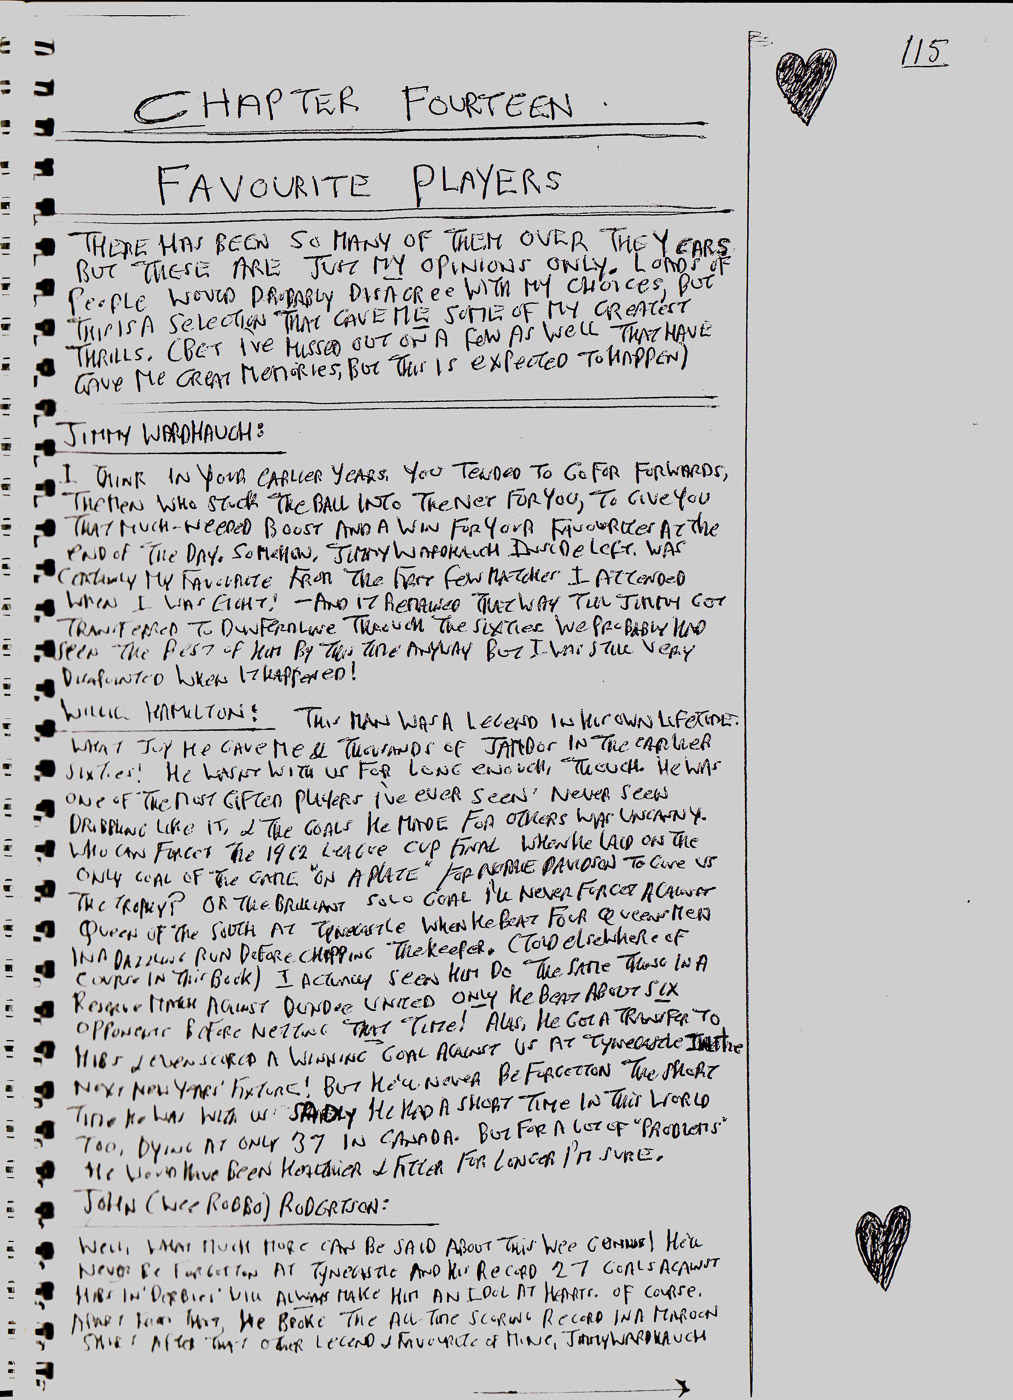 115
CHAPTER FOURTEEN.
FAVOURITE PLAYERS
THERE HAS BEEN SO MANY OF THEM OVER THE YEARS
BUT THESE ARE JUST MY OPINIONS ONLY. LOADS OF
PEOPLE WOULD PROBABLY DISAGREE WITH MY CHOICES, BUT
THIS IS A SELECTION THAT GAVE ME SOME OF MY GREATEST
THRILLS. (BET I'VE MISSED OUT ON A FEW AS WELL THAT HAVE
GAVE ME GREAT MEMORIES, BUT THIS IS EXPECTED TO HAPPEN)
JIMMY WARDHAUGH:
I THINK IN YOUR EARLIER YEARS, YOU TENDED TO GO FOR FORWARDS,
THE MEN WHO STUCK THE BALL INTO THE NET FOR YOU, TO GIVE YOU
THAT MUCH-NEEDED BOOST AND A WIN FOR YOUR FAVOURITES AT THE
END OF THE DAY. SOMEHOW, JIMMY WARDHAUGH INSIDE LEFT. WAS
CERTAINLY MY FAVOURITE FROM THE FIRST FEW MATCHES I ATTENDED
WHEN I WAS EIGHT! - AND IT REMAINED THAT WAY TILL JIMMY GOT
TRANSFERRED TO DUNFERMLINE THROUGH THE SIXTIES. WE PROBABLY HAD
SEEN THE BEST OF HIM BY THIS TIME ANYWAY BUT I WAS STILL VERY
DISAPPOINTED WHEN IT HAPPENED!
WILLIE HAMILTON: THIS MAN WAS A LEGEND IN HIS OWN LIFETIME.
WHAT JOY HE GAVE ME & THOUSANDS OF JAMBOS IN THE EARLIER
SIXTIES! HE WASNT WITH US FOR LONG ENOUGH, THOUGH. HE WAS
ONE OF THE MOST GIFTED PLAYERS I'VE EVER SEEN. NEVER SEEN
DRIBBLING LIKE IT, & THE GOALS HE MADE FOR OTHERS WAS UNCANNY.
WHO CAN FORGET THE 1962 LEAGUE CUP FINAL WHEN HE LAID ON THE
ONLY GOAL OF THE GAME "ON A PLATE" FOR NORRIE DAVIDSON TO GIVE US
THE TROPHY? OR THE BRILLIANT SOLO GOAL I'LL NEVER FORGET AGAINST
QUEEN OF THE SOUTH AT TYNECASTLE WHEN HE BEAT FOUR QUEENS MEN
IN A DAZZLING RUN BEFORE CHIPPING THE KEEPER. (TOLD ELSEWHERE OF
COURSE IN THIS BOOK) I ACTUALLY SEEN HIM DO THE SAME THING IN A
RESERVE MATCH AGAINST DUNDEE UNITED ONLY HE BEAT ABOUT SIX
OPPONENTS BEFORE NETTING THAT TIME! ALAS, HE GOT A TRANSFER TO
HIBS & EVEN SCORED A WINNING GOAL AGAINST US AT TYNECASTLE IN THE
NEXT NEW YEARS' FIXTURE! BUT HE'LL NEVER BE FORGOTTON THE SHORT
TIME HE WAS WITH US. SADLY HE HAD A SHORT TIME IN THIS WORLD
TOO, DYING AT ONLY 37 IN CANADA. BUT FOR A LOT OF "PROBLEMS"
HE WOULD HAVE BEEN HEALTHIER & FITTER FOR LONGER I'M SURE.
JOHN (WEE ROBBO) ROBERTSON:
WELL, WHAT MUCH MORE CAN BE SAID ABOUT THIS WEE GENIUS! HE'LL
NEVER BE FORGOTTON AT TYNECASTLE AND HIS RECORD 27 GOALS AGAINST
HIBS IN 'DERBIES' WILL ALWAYS MAKE HIM AN IDOL AT HEARTS. OF COURSE,
APART FROM THAT, HE BROKE THE ALL-TIME SCORING RECORD IN A MAROON
SHIRT AFTER THAT OTHER LEGEND & FAVOURITE OF MINE, JIMMY WARDHAUGH